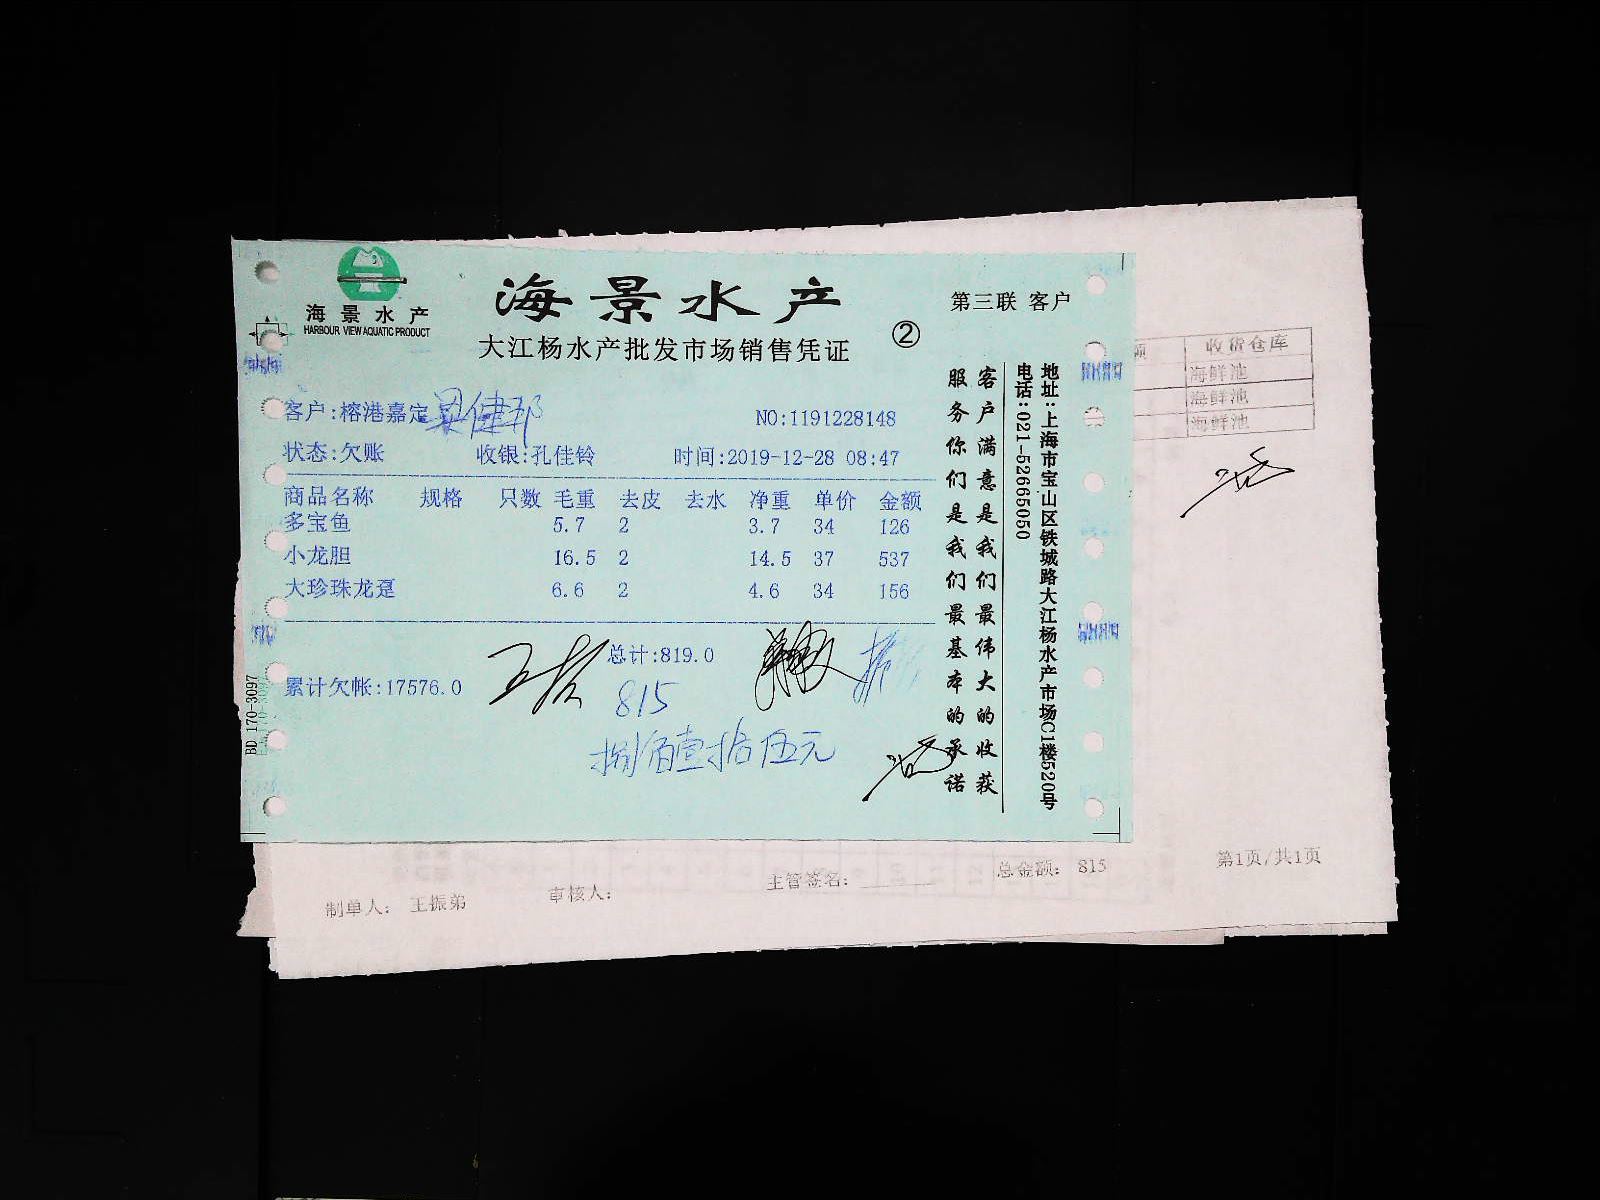 海景水产
HARBOUR VIEW AQUATIC PRODUCT
海景水产
大江杨水产批发市场销售凭证
②
第三联 客户
客户:榕港嘉定
NO:1191228148
状态:欠账 收银:孔佳铃 时间:2019-12-28 08:47
商品名称 规格 只数 毛重 去皮 去水 净重 单价 金额
多宝鱼 5.7 2 3.7 34 126
小龙胆 16.5 2 14.5 37 537
大珍珠龙趸 6.6 2 4.6 34 156
总计:819.0
累计欠帐:17576.0
815
捌佰壹拾伍元
客户满意是我们最伟大的收获
服务你们是我们最基本的承诺
地址:上海市宝山区铁城路大江杨水产市场C1楼520号
电话:021-52665050
BD 170-3097
额 收货仓库
海鲜池
海鲜池
海鲜池
制单人: 王振弟 审核人: 主管签名: 总金额: 815 第1页/共1页